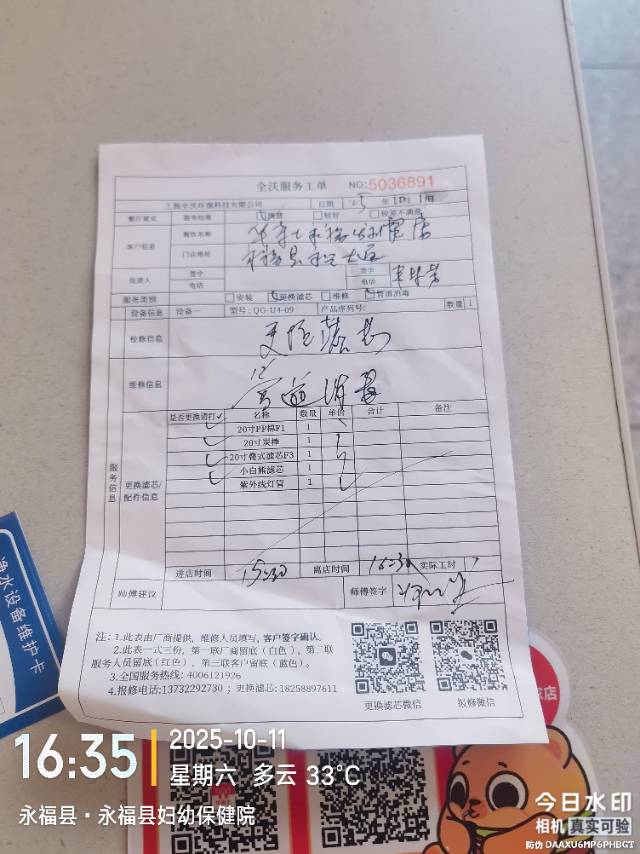 全沃服务工单 NO:5036891
上海全沃环保科技有限公司 日期 25年10月11日
餐厅意见 服务结果 满意 较好 较差不满意
客户信息 餐饮名称
门店地址 永福县
负责人 签字 电话 签字 电话
服务类别 安装 更换滤芯 维修 管道消毒
设备信息 设备一 型号: QG-U4-09 产品序列号: 数量 1
检修信息 更换滤芯
维修信息 管道消毒
服务信息
更换滤芯/配件信息
是否更换请打✓ 名称 数量 单价 合计 备注
✓ 20寸PP棉F1 1
✓ 20寸炭棒 1
✓ 20寸叠式滤芯F3 1
✓ 小白熊滤芯 1
✓ 紫外线灯管 1
进店时间 15:30 离店时间 16:30 实际工时
师傅建议 师傅签字
注: 1.此表由厂商提供, 维修人员填写, 客户签字确认.
2.此表一式三份, 第一联厂商留底(白色), 第二联
服务人员留底(红色), 第三联客户留底(蓝色).
3.全国服务热线: 4006121926
4.报修电话:13732292730 ; 更换滤芯:18258897611
更换滤芯微信 报修微信
净水设备维护卡
店
16:35
2025-10-11
星期六 多云 33℃
永福县·永福县妇幼保健院
今日水印
相机 真实可验
防伪 DAAXU6MP6PHBGT